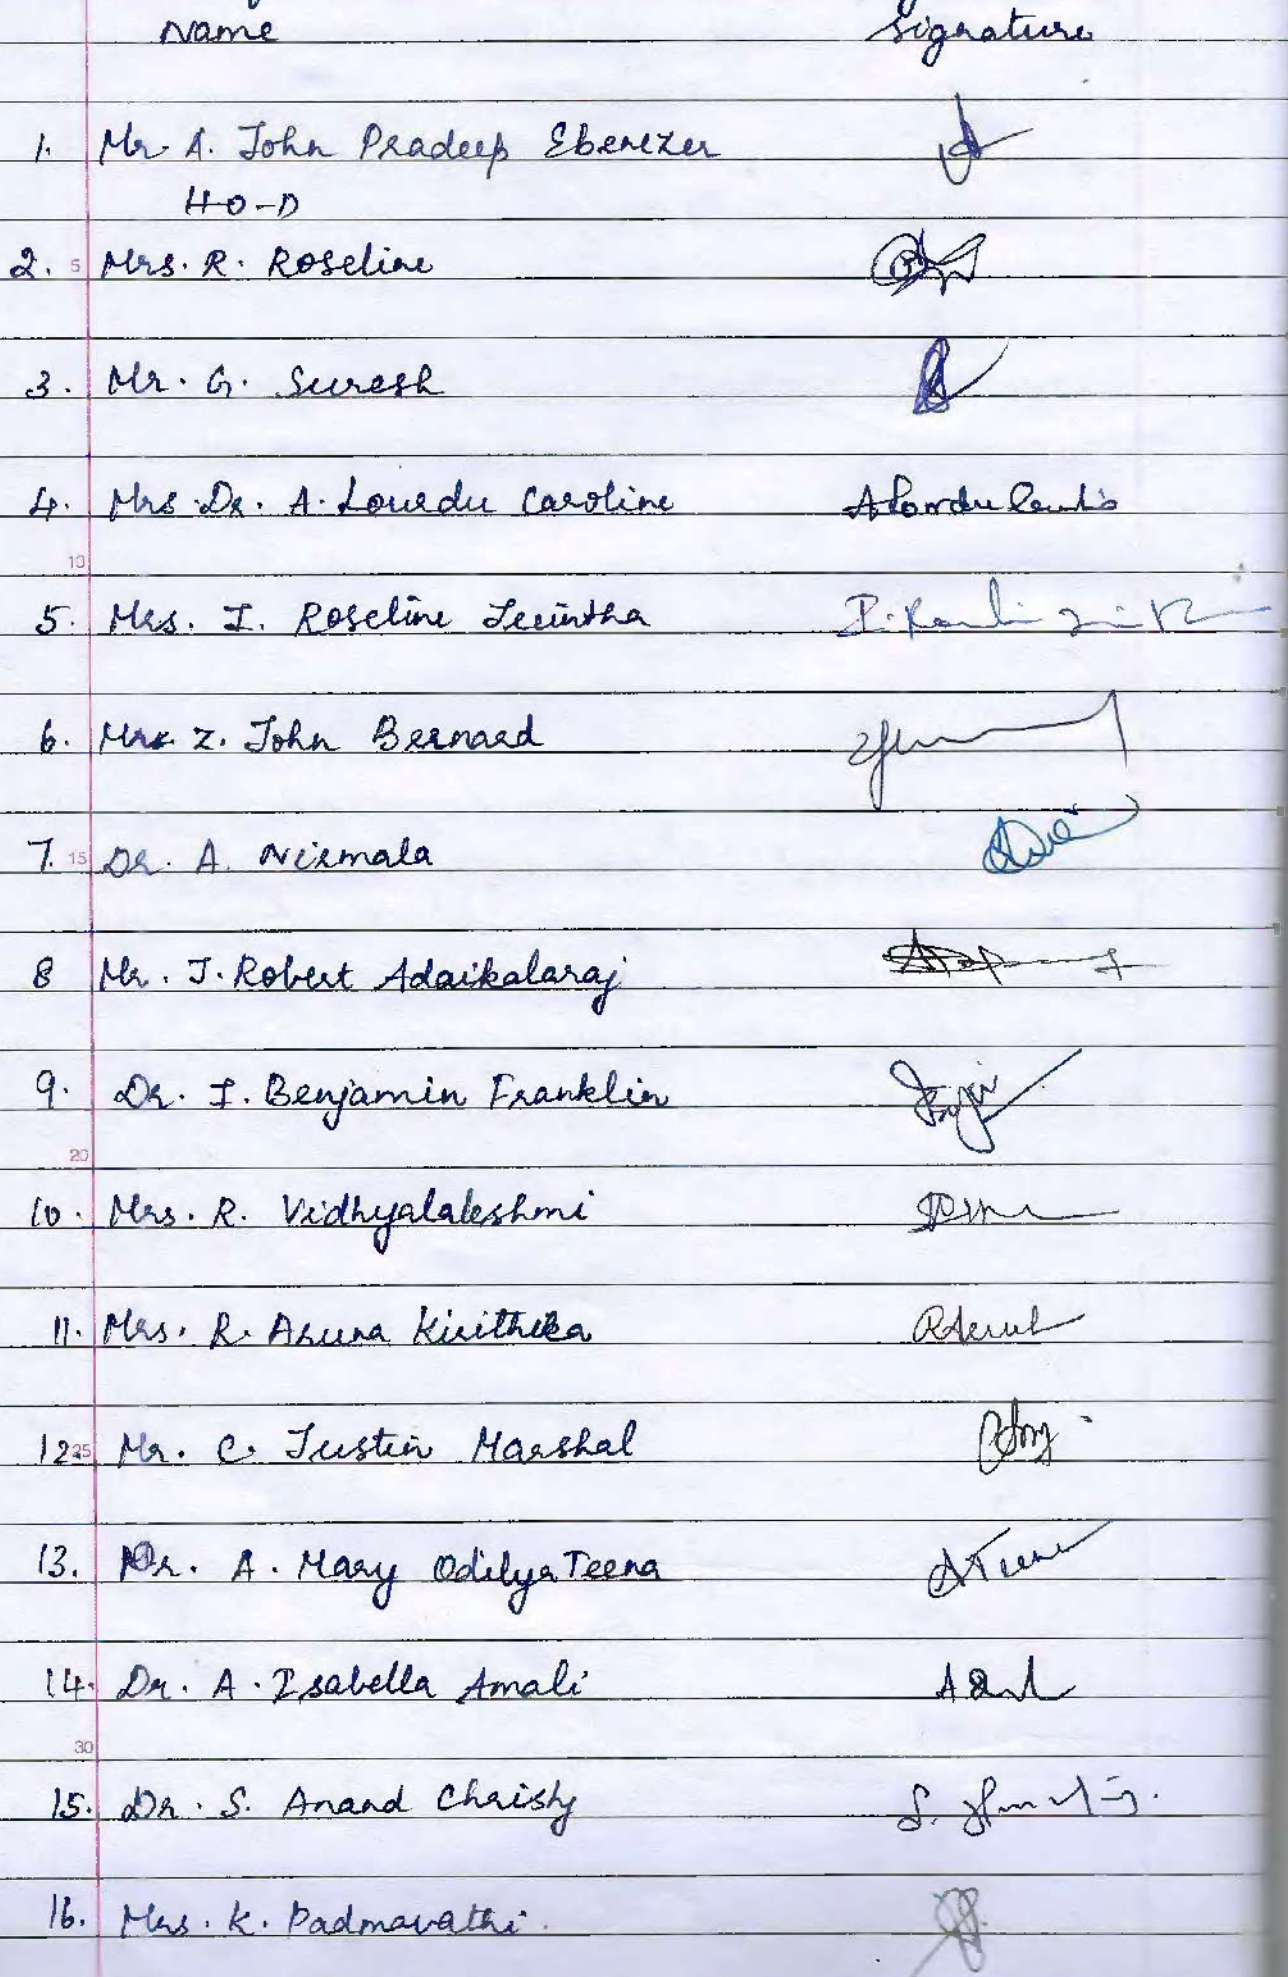 Name Signature
1. Mr. A. John Pradeep Ebenezer
H.O.D
2. 5 Mrs. R. Roseline
3. Mr. G. Suresh
4. Mrs. Dr. A. Lourdu Caroline
10
5. Mrs. I. Roseline Jecintha
6. Mr. Z. John Bernard
7. 15 Dr. A. Nirmala
8 Mr. J. Robert Adaikalaraj
9. Dr. I. Benjamin Franklin
20
10. Mrs. R. Vidhyalakshmi
11. Mrs. R. Aruna Kirithika
12. 25 Mr. C. Justin Marshal
13. Dr. A. Mary Odilya Teena
14. Dr. A. Isabella Amali
30
15. Dr. S. Anand Christy
16. Mrs. K. Padmavathi.